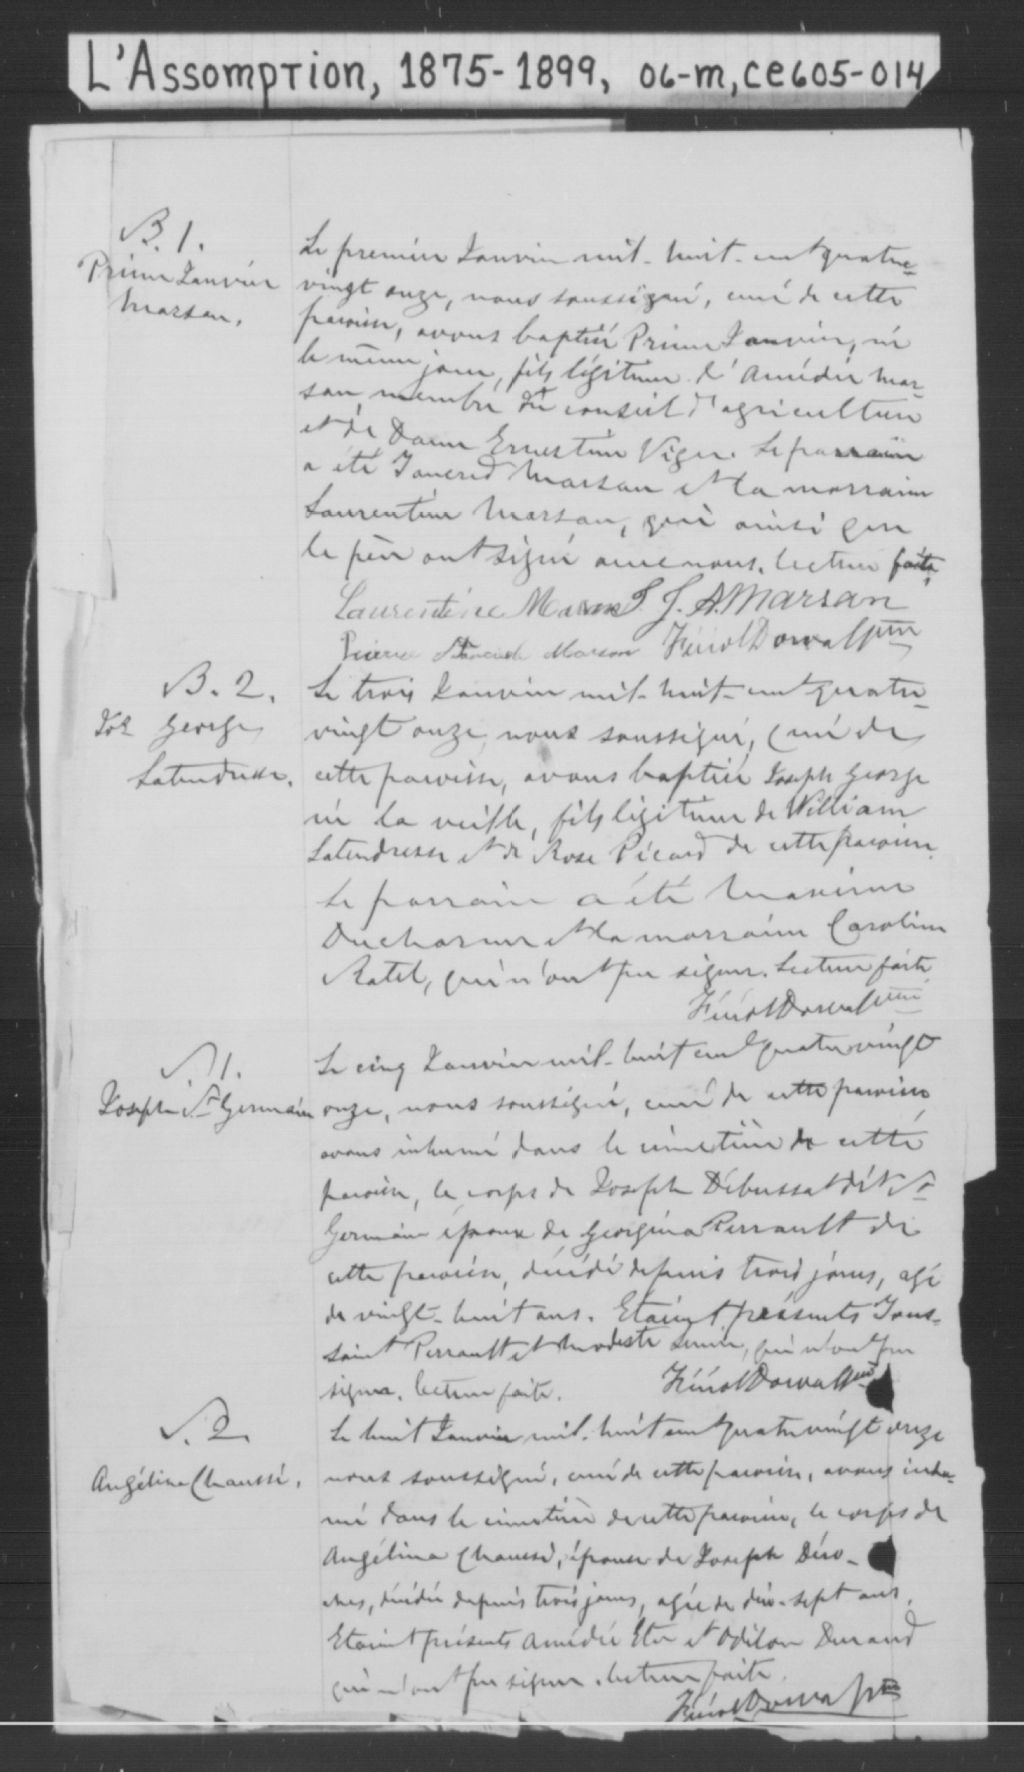 L'Assomption, 1875-1899, 06-M, CE605-014
B. 1.
Prime Janvier
Marsan.
Le premier Janvier mil-huit-cent quatre-
vingt onze, nous soussigné, curé de cette
paroisse, avons baptisé Prime Janvier, né
le même jour, fils légitime d'Amédée Mar-
san membre du conseil d'agriculture
et de Dame Ernestine Viger. Le parrain
a été Tancred Marsan et la marraine
Laurentine Marsan, qui ainsi que
le père ont signé avec nous. Lecture faite
Laurentine Marsan I. J. A. Marsan
Pierre Marsan Ptre
B. 2.
Jos George
Latendresse.
Le trois Janvier mil-huit-cent quatre-
vingt onze, nous soussigné, curé de
cette paroisse, avons baptisé Joseph George
né la veille, fils légitime de William
Latendresse et de Rose Picard de cette paroisse.
Le parrain a été Maxime
Ducharme et la marraine Caroline
Ratel, qui n'ont pu signer. Lecture faite
Ptre
S. 1.
Joseph St Germain
Le cinq Janvier mil-huit cent quatre vingt
onze, nous soussigné, curé de cette paroisse
avons inhumé dans le cimetière de cette
paroisse, le corps de Joseph Débussat dit St
Germain époux de Georgina Perrault de
cette paroisse, décédé depuis trois jours, agé
de vingt-huit ans. Etaient présents Tous-
saint Perrault et Modeste qui n'ont pu
signer. Lecture faite.
S. 2.
Angélina Chaussé.
Le huit Janvier mil-huit cent quatre vingt onze
nous soussigné, curé de cette paroisse, avons inhu-
mé dans le cimetière de cette paroisse, le corps de
Angélina Chaussé, épouse de Joseph Déro-
ches, décédée depuis trois jours, agée de dix-sept ans.
Etaient présents Amédée et Odilon Durand
qui n'ont pu signer. Lecture faite.